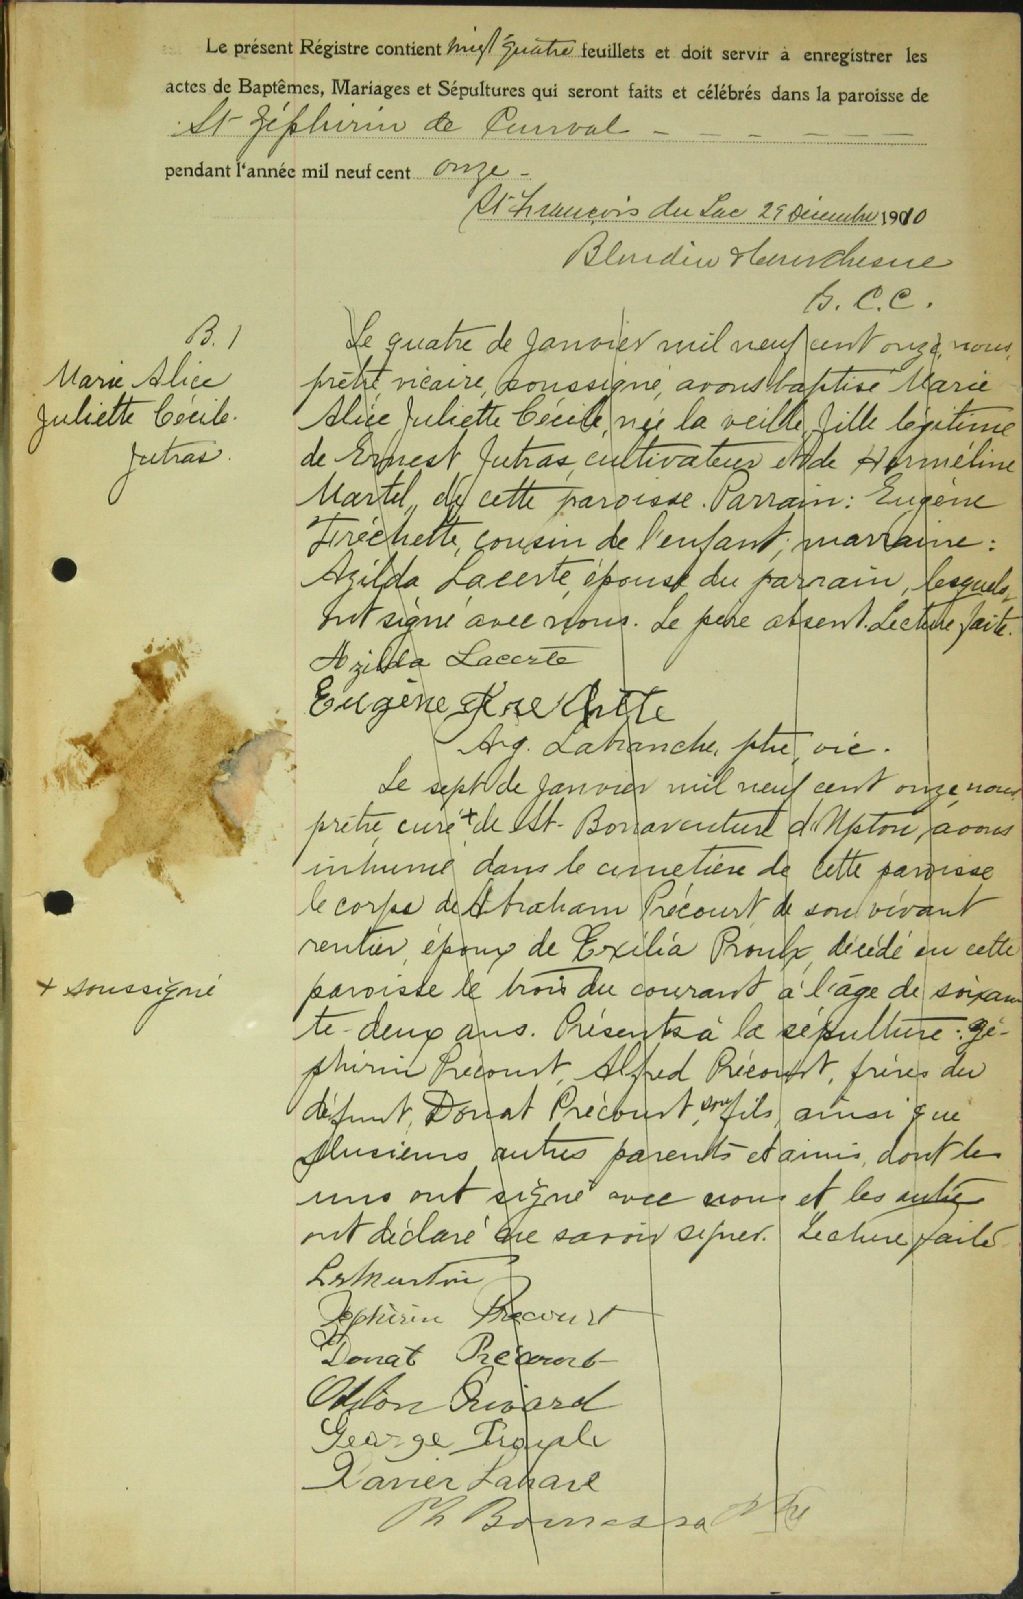 Le présent Régistre contient vingt quatre feuillets et doit servir à enregistrer les
actes de Baptêmes, Mariages et Sépultures qui seront faits et célébrés dans la paroisse de
St Zéphirin de Courval
pendant l'année mil neuf cent onze -
St François du Lac 29 Décembre 1910
Blondin & Ducdhesne
G. C. C.
B. 1
Marie Alice
Juliette Cécile
Jutras.
Le quatre de Janvier mil neuf cent onze, nous,
prêtre vicaire, soussigné, avons baptisé Marie
Alice Juliette Cécile, née la veille, fille légitime
de Ernest Jutras, cultivateur et de Herméline
Martel, de cette paroisse. Parrain: Eugène
Fréchette, cousin de l'enfant; marraine:
Azilda Lacerte, épouse du parrain, lesquels
ont signé avec nous. Le père absent. Lecture faite.
Azilda Lacerte
Eugène Frechette
Arg. Labranche, ptre, vic.
Le sept de Janvier mil neuf cent onze, nous
prêtre, curé + de St-Bonaventure d'Upton, avons
inhumé dans le cimetière de cette paroisse
le corps de Abraham Précourt de son vivant
rentier, époux de Exilia Proulx, décédé en cette
+ soussigné
paroisse le trois du courant à l'âge de soixan
te-deux ans. Présents à la sépulture: Zé-
phirin Précourt, Alfred Précourt, frères du
défunt, Donat Précourt, son fils, ainsi que
plusieurs autres parents et amis, dont les
uns ont signé avec nous et les autres
ont déclaré ne savoir signer. Lecture faite
Zéphirin Precourt
Donat Précourt
Rivard
George
Xavier
Ph